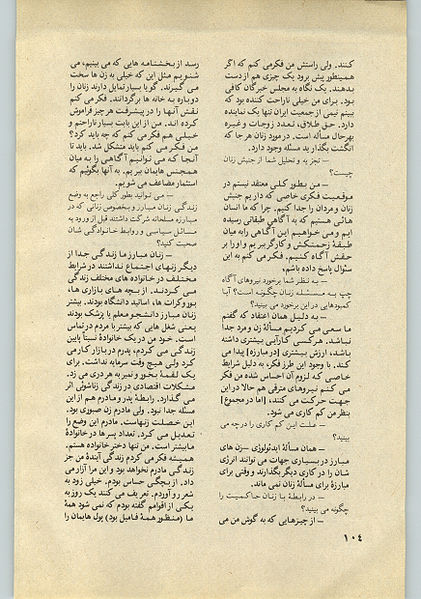 کنند. ولی راستش من فکر می کنم که اگر
همینطور پیش برود یک چیزی هم از دست
بدهند. یک نگاه به مجلس خبرگان کافی
بود. برای من خیلی ناراحت کننده بود که
ببینم نیمی از جمعیت ایران تنها یک نماینده
دارد. حق طلاق، تعدد زوجات و غیره
بهرحال مسأله است. در مورد زنان هر جا که
انگشت بگذارید مسئله وجود دارد.
– تجزیه و تحلیل شما از جنبش زنان
چیست؟
– من بطور کلی معتقد نیستم در
موقعیت فکری خاصی که داریم جنبش
زنان و مردان را جدا کنیم. چرا که ما انسان
هائی هستیم که به آگاهی طبقاتی رسیده
ایم و می خواهیم این آگاهی را به میان
طبقهٔ زحمتکش و کارگر ببریم و او را بر
حقش آگاه کنیم. فکر می کنم که به این
سؤال پاسخ داده باشم.
– به نظر شما برخورد نیروهای آگاه
چپ به مسئله زنان چگونه است؟ آیا
کمبودهایی در این برخورد می بینید؟
– به دلیل همان اعتقاد که گفتم
ما سعی می کردیم مسألهٔ زن و مرد جدا
نباشد. هر کسی کارآیی بیشتری داشته
باشد، ارزش بیشتری [در مبارزه] پیدا می
کند. با وجود این طرز فکر، به دلیل شرایط
خاصی که لزوم آن احساس شده من فکر
می کنم نیروهای مترقی هم حالا در این
جهت حرکت می کنند، [اما در مجموع]
بنظر من کم کاری می شود.
– علت این کم کاری را در چه می
بینید؟
– همان مسألهٔ ایدئولوژی – زن های
مبارز در بسیاری جهات می توانند انرژی
شان را در کاری دیگر بگذارند و وقتی برای
مبارزهٔ برای مسألهٔ زنان نمی ماند.
– در رابطهٔ با زنان حاکمیت را
چگونه می بینید؟
– از چیزهایی که به گوش من می
رسد از بخشنامه هایی که می بینم، می
شنویم مثل این که خیلی به زن ها سخت
می گیرند. گویا بسیار تمایل دارند زنان را
دوباره به خانه ها برگردانند. فکر می کنم
نقش آنها را در پیشرفت هر چیز فراموش
کرده اند. من از این بابت بسیار ناراحتم و
خیلی هم فکر می کنم که چه باید کرد؟
من فکر می کنم باید متشکل شد. باید تا
آنجا که می توانیم آگاهی را به میان
همجنس هایمان ببریم. به آنها بگوئیم که
استثمار مضاعف می شویم.
– می توانید بطور کلی راجع به وضع
زندگی زنان مبارز و بخصوص زنانی که در
مبارزه مسلحانه شرکت داشتند قبل از ورود به
مسائل سیاسی و روابط خانوادگی شان
صحبت کنید؟
– زنان مبارز ما زندگی جدا از
دیگر زنهای اجتماع نداشتند در شرایط
مختلف در خانواده های مختلف زندگی
می کردند. از بچه های بازاری ها،
بوروکرات ها، اساتید دانشگاه بودند. بیشتر
زنان مبارز دانشجو معلم یا پزشک بودند
یعنی شغل هایی که بیشتر با مردم در تماس
است. خود من در یک خانوادهٔ نسبتاً پایین
زندگی می کردم، پدرم در بازار کار می
کرد ولی هیچ وقت سرمایه نداشت. برای
یک لقمهٔ بخور و نمیر به هر دری می زد.
مشکلات اقتصادی در زندگی زناشوئی اثر
می گذارد. رابطهٔ پدر و مادرم هم از این
مسئله جدا نبود. ولی مادرم زن صبوری بود.
این خصلت زنهاست. مادرم این وضع را
تعدیل می کرد. تعداد پسرها در خانوادهٔ
ما بیشتر است. من تنها دختر خانواده هستم.
همیشه فکر می کردم زندگی آیندهٔ من جز
زندگی مادرم نخواهد بود و این مرا آزار می
داد. از بچگی حساس بودم. خیلی زود به
شعر رو آوردم. تعریف می کنند یک روز به
یکی از اقوام گفته بودم که نمی شود همهٔ
ما (منظور همهٔ فامیل بود) پول هایمان را
۱۰۴